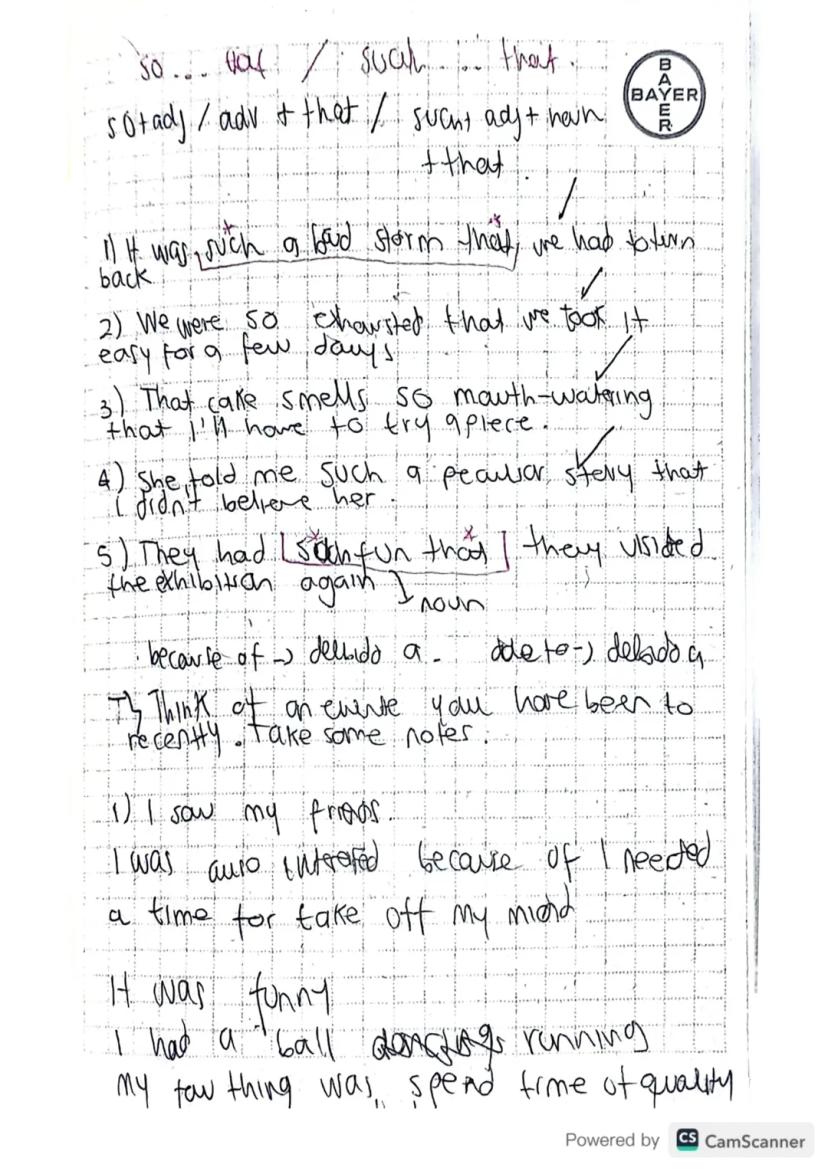 so... that / such ... that.
BAYER
BAYER
so+adj / adv + that / such+ adj+ noun
+ that
1) It was such a bad storm that, we had to turn
back
2) We were so exhausted that we took it
easy for a few days
3) That cake smells so mouth-watering
that I'll have to try a piece.
4) She told me such a peculiar story that
I didn't believe her.
5) They had such fun that they visided
the exhibition again
noun
because of -> debido a - due to -> debido a
Think of an evente you have been to
recently. Take some notes.
1) I saw my frieds.
I was interested because of I needed
a time for take off my mind
It was funny
I had a ball running
my fav thing was spend time of quality
Powered by CS CamScanner